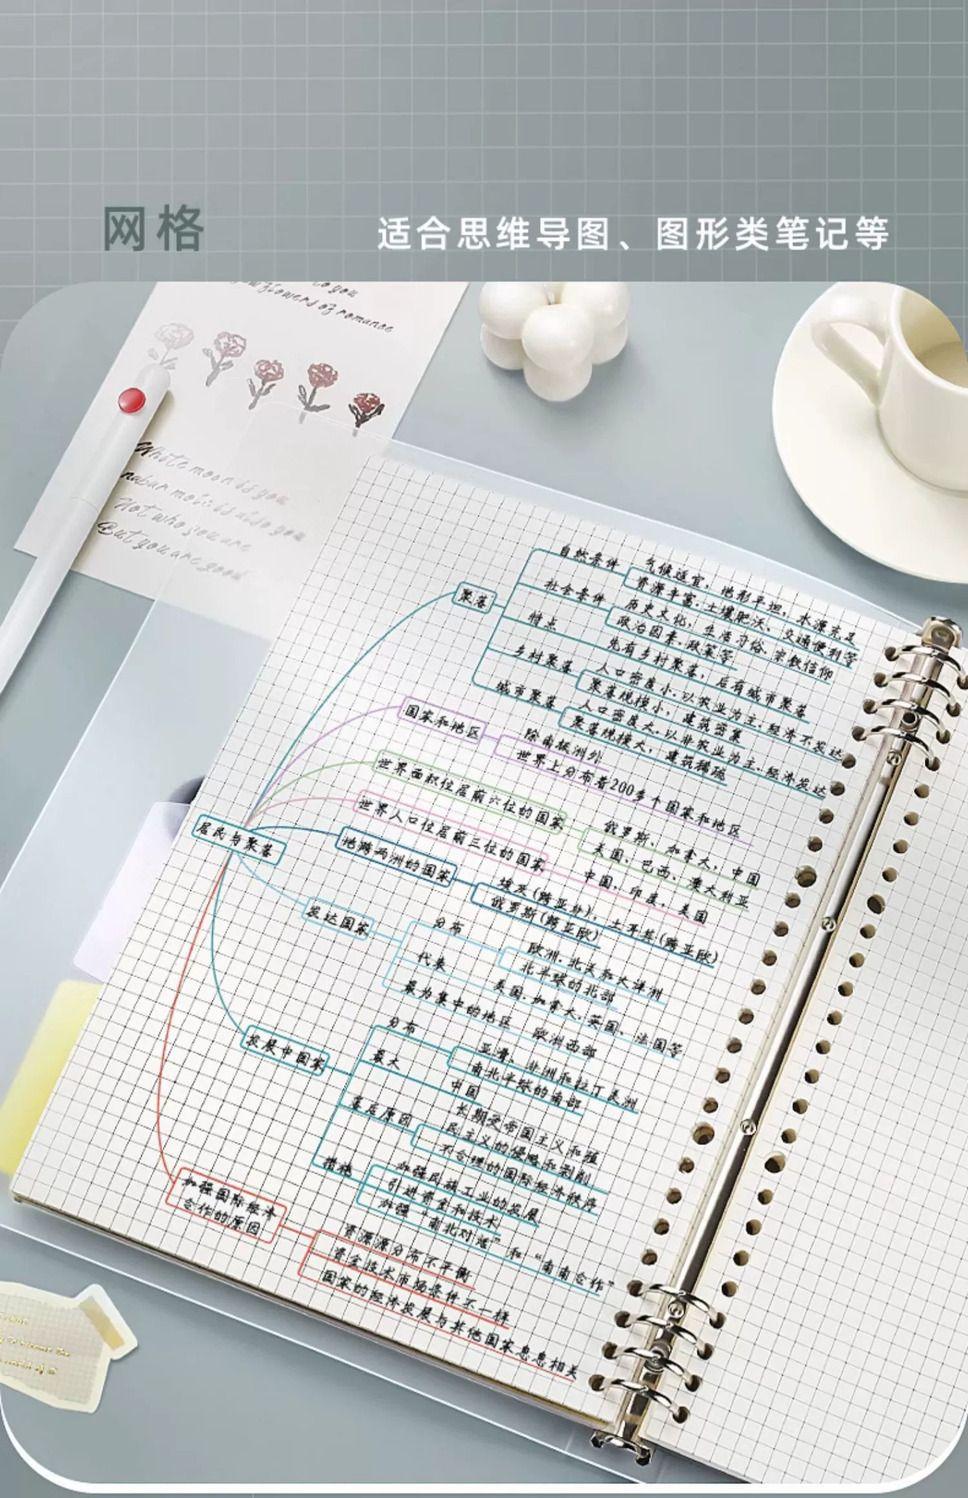 网格
适合思维导图、图形类笔记等
to you
flowers of romance
White moon is you
Not who you are
But you are good
居民与聚落
聚落
自然条件
气候适宜，地形平坦，水源充足
资源丰富，土壤肥沃，交通便利等
社会条件
历史文化，生活习俗，宗教信仰
政治因素，政策等
特点
先有乡村聚落，后有城市聚落
乡村聚落
人口密度小，以农业为主，经济不发达
聚落规模小，建筑密集
城市聚落
人口密度大，以非农业为主，经济发达
聚落规模大，建筑稀疏
国家和地区
除南极洲外
世界上分布着200多个国家和地区
世界面积位居前六位的国家
俄罗斯、加拿大、中国
美国、巴西、澳大利亚
世界人口位居前三位的国家
中国、印度、美国
地跨两洲的国家
埃及(跨亚非)，土耳其(跨亚欧)
俄罗斯(跨亚欧)
发达国家
分布
欧洲、北美和大洋洲
北半球的北部
代表
美国、加拿大、英国、法国等
最为集中的地区
欧洲西部
发展中国家
分布
亚、非洲和拉丁美洲
南北半球的南部
最大
中国
落后原因
长期受帝国主义和殖
民主义的侵略和剥削
不合理的国际经济秩序
措施
加强民族工业的发展
引进资金和技术
加强“南北对话”和“南南合作”
加强国际经济
合作的原因
资源源分布不平衡
资金技术市场条件不一样
国家的经济发展与其他国家息息相关